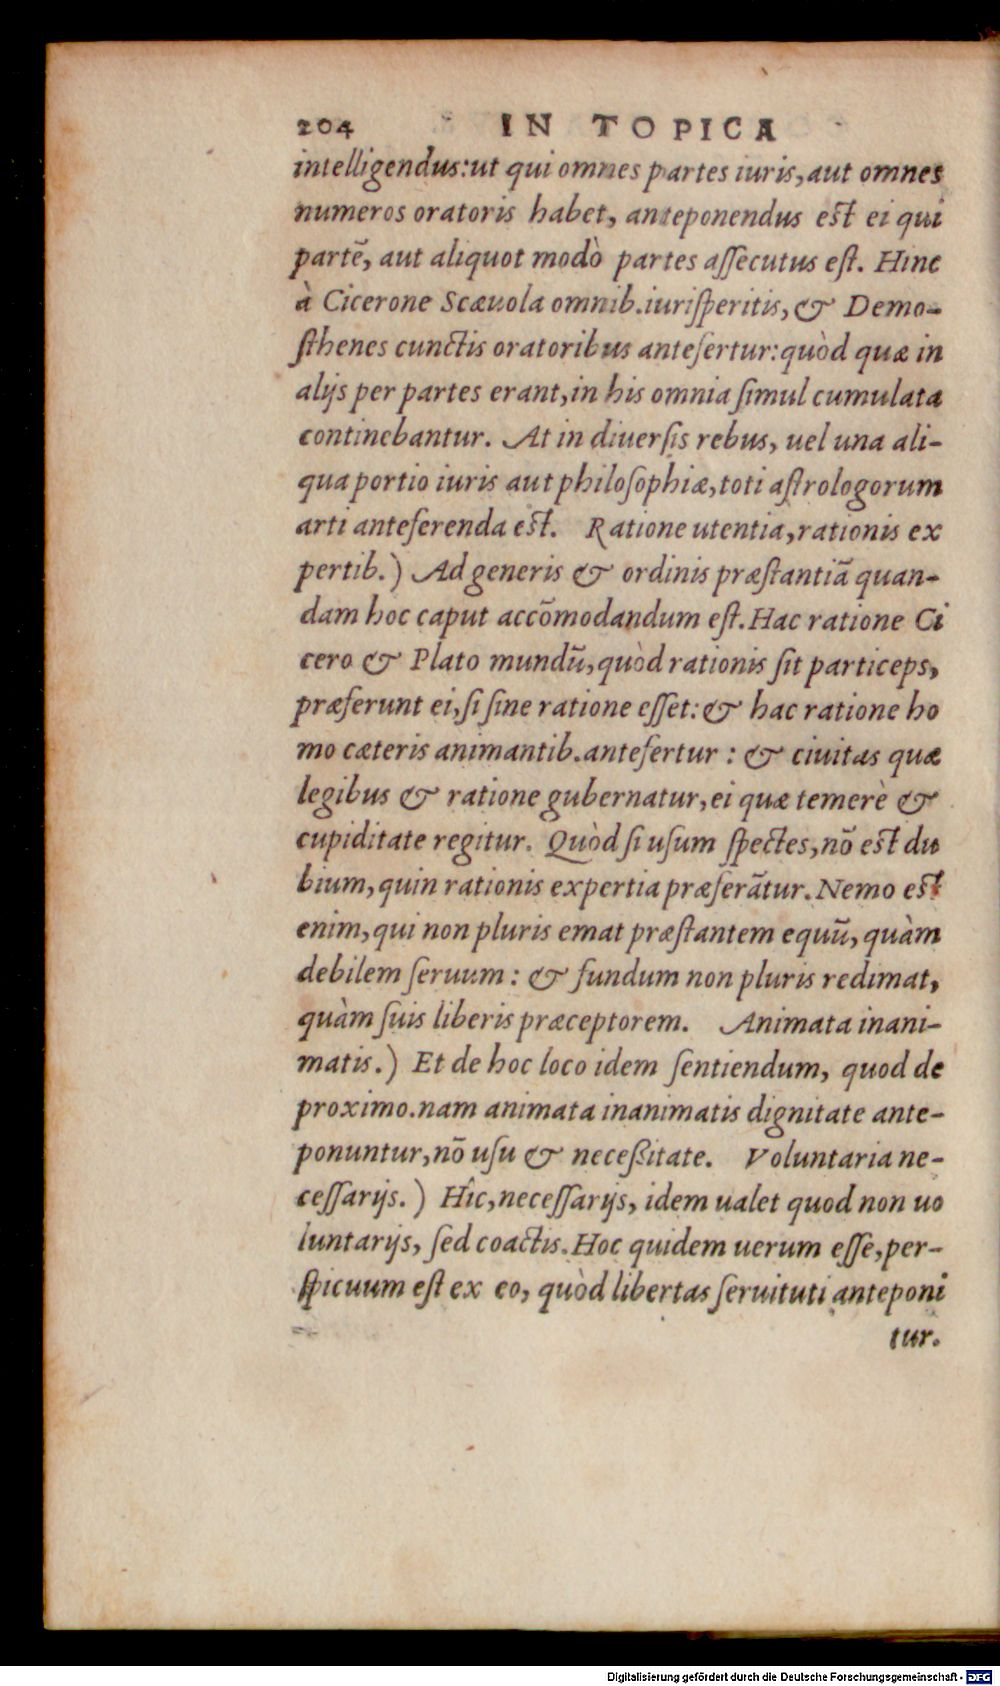 204 IN TOPICA
intelligendus: ut qui omnes partes iuris, aut omnes
numeros oratoris habet, anteponendus est ei qui
partē, aut aliquot modò partes assecutus est. Hinc
à Cicerone Scæuola omnib. iurisperitis, & Demo-
sthenes cunctis oratoribus antefertur: quòd quæ in
alijs per partes erant, in his omnia simul cumulata
continebantur. At in diuersis rebus, uel una ali-
qua portio iuris aut philosophiæ, toti astrologorum
arti anteferenda est. Ratione utentia, rationis ex
pertib.) Ad generis & ordinis præstantiā quan-
dam hoc caput accōmodandum est. Hac ratione Ci
cero & Plato mundū, quòd rationis sit particeps,
præferunt ei, si sine ratione esset: & hac ratione ho
mo cæteris animantib. antefertur : & ciuitas quæ
legibus & ratione gubernatur, ei quæ temerè &
cupiditate regitur. Quòd si usum spectes, nō est du
bium, quin rationis expertia præferātur. Nemo est
enim, qui non pluris emat præstantem equū, quàm
debilem seruum : & fundum non pluris redimat,
quàm suis liberis præceptorem. Animata inani-
matis.) Et de hoc loco idem sentiendum, quod de
proximo. nam animata inanimatis dignitate ante-
ponuntur, nō usu & neceßitate. Voluntaria ne-
cessarijs.) Hîc, necessarijs, idem ualet quod non uo
luntarijs, sed coactis. Hoc quidem uerum esse, per-
spicuum est ex eo, quòd libertas seruituti anteponi
tur.
Digitalisierung gefördert durch die Deutsche Forschungsgemeinschaft - DFG